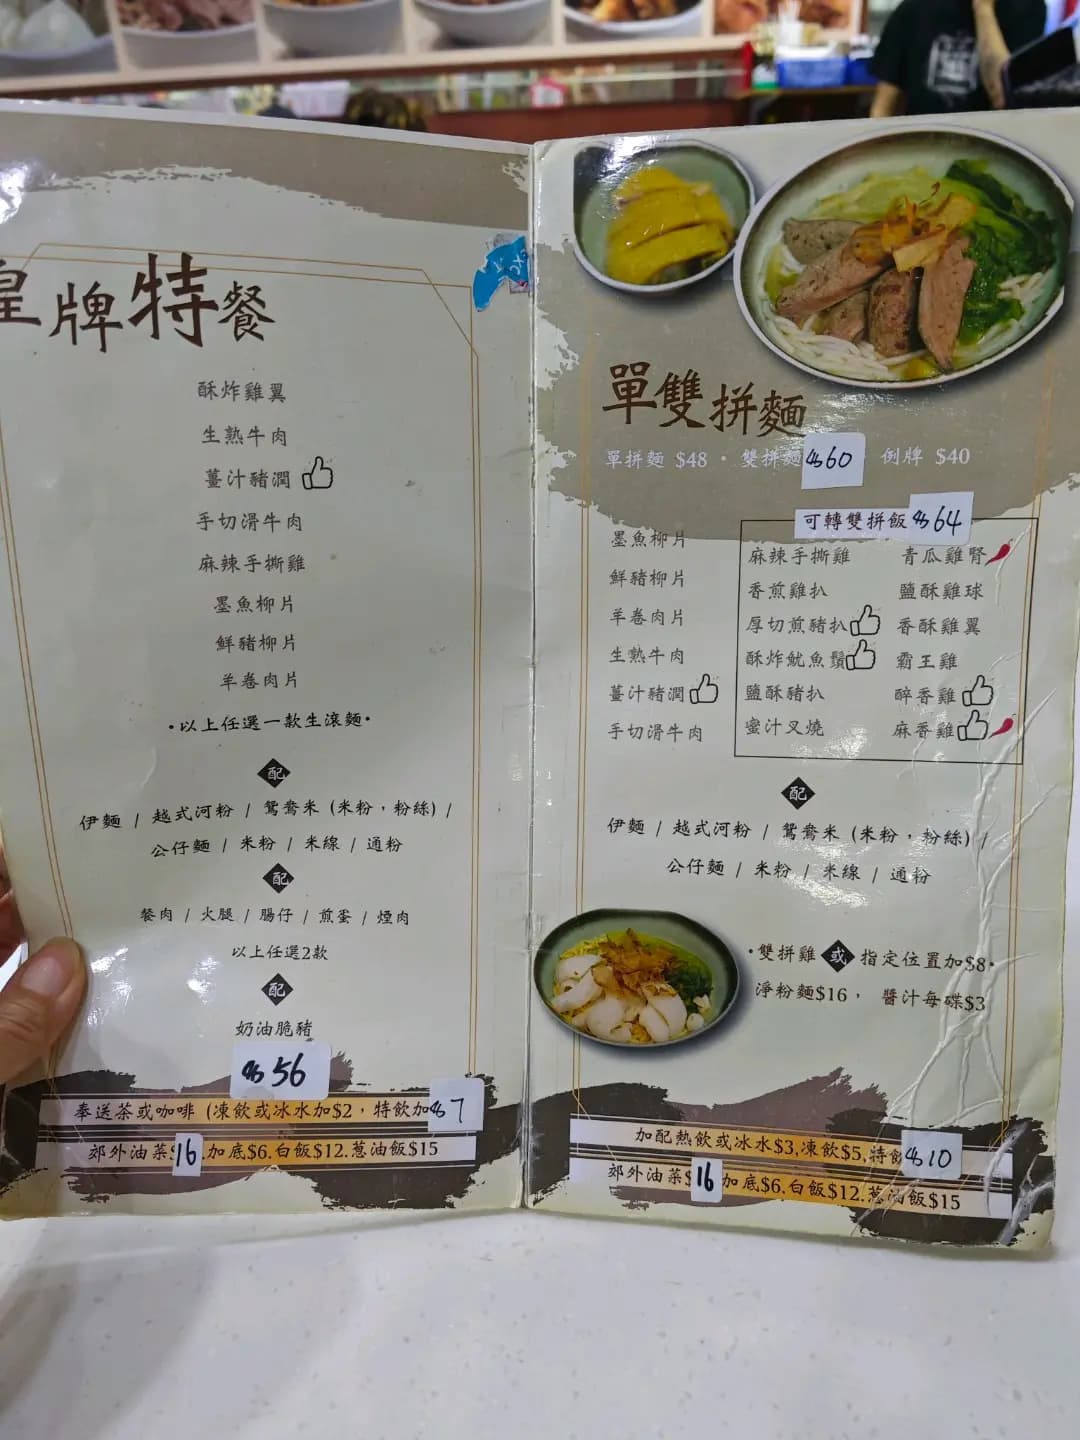 皇牌特餐
酥炸雞翼
生熟牛肉
薑汁豬潤
手切滑牛肉
麻辣手撕雞
墨魚柳片
鮮豬柳片
羊卷肉片
•以上任選一款生滾麵•
配
伊麵 / 越式河粉 / 鴛鴦米 (米粉，粉絲) /
公仔麵 / 米粉 / 米線 / 通粉
配
餐肉 / 火腿 / 腸仔 / 煎蛋 / 煙肉
以上任選2款
配
奶油脆豬
$56
奉送茶或咖啡 (凍飲或冰水加$2，特飲加$7
郊外油菜$16.加底$6.白飯$12.蔥油飯$15
單雙拼麵
單拼麵 $48 · 雙拼麵$60 例牌 $40
可轉雙拼飯$64
墨魚柳片
鮮豬柳片
羊卷肉片
生熟牛肉
薑汁豬潤
手切滑牛肉
麻辣手撕雞 青瓜雞腎
香煎雞扒 鹽酥雞球
厚切煎豬扒 香酥雞翼
酥炸魷魚鬚 霸王雞
鹽酥豬扒 醉香雞
蜜汁叉燒 麻香雞
配
伊麵 / 越式河粉 / 鴛鴦米 (米粉，粉絲) /
公仔麵 / 米粉 / 米線 / 通粉
•雙拼雞 或 指定位置加$8•
淨粉麵$16， 醬汁每碟$3
加配熱飲或冰水$3,凍飲$5,特飲$10
郊外油菜$16 加底$6.白飯$12.蔥油飯$15